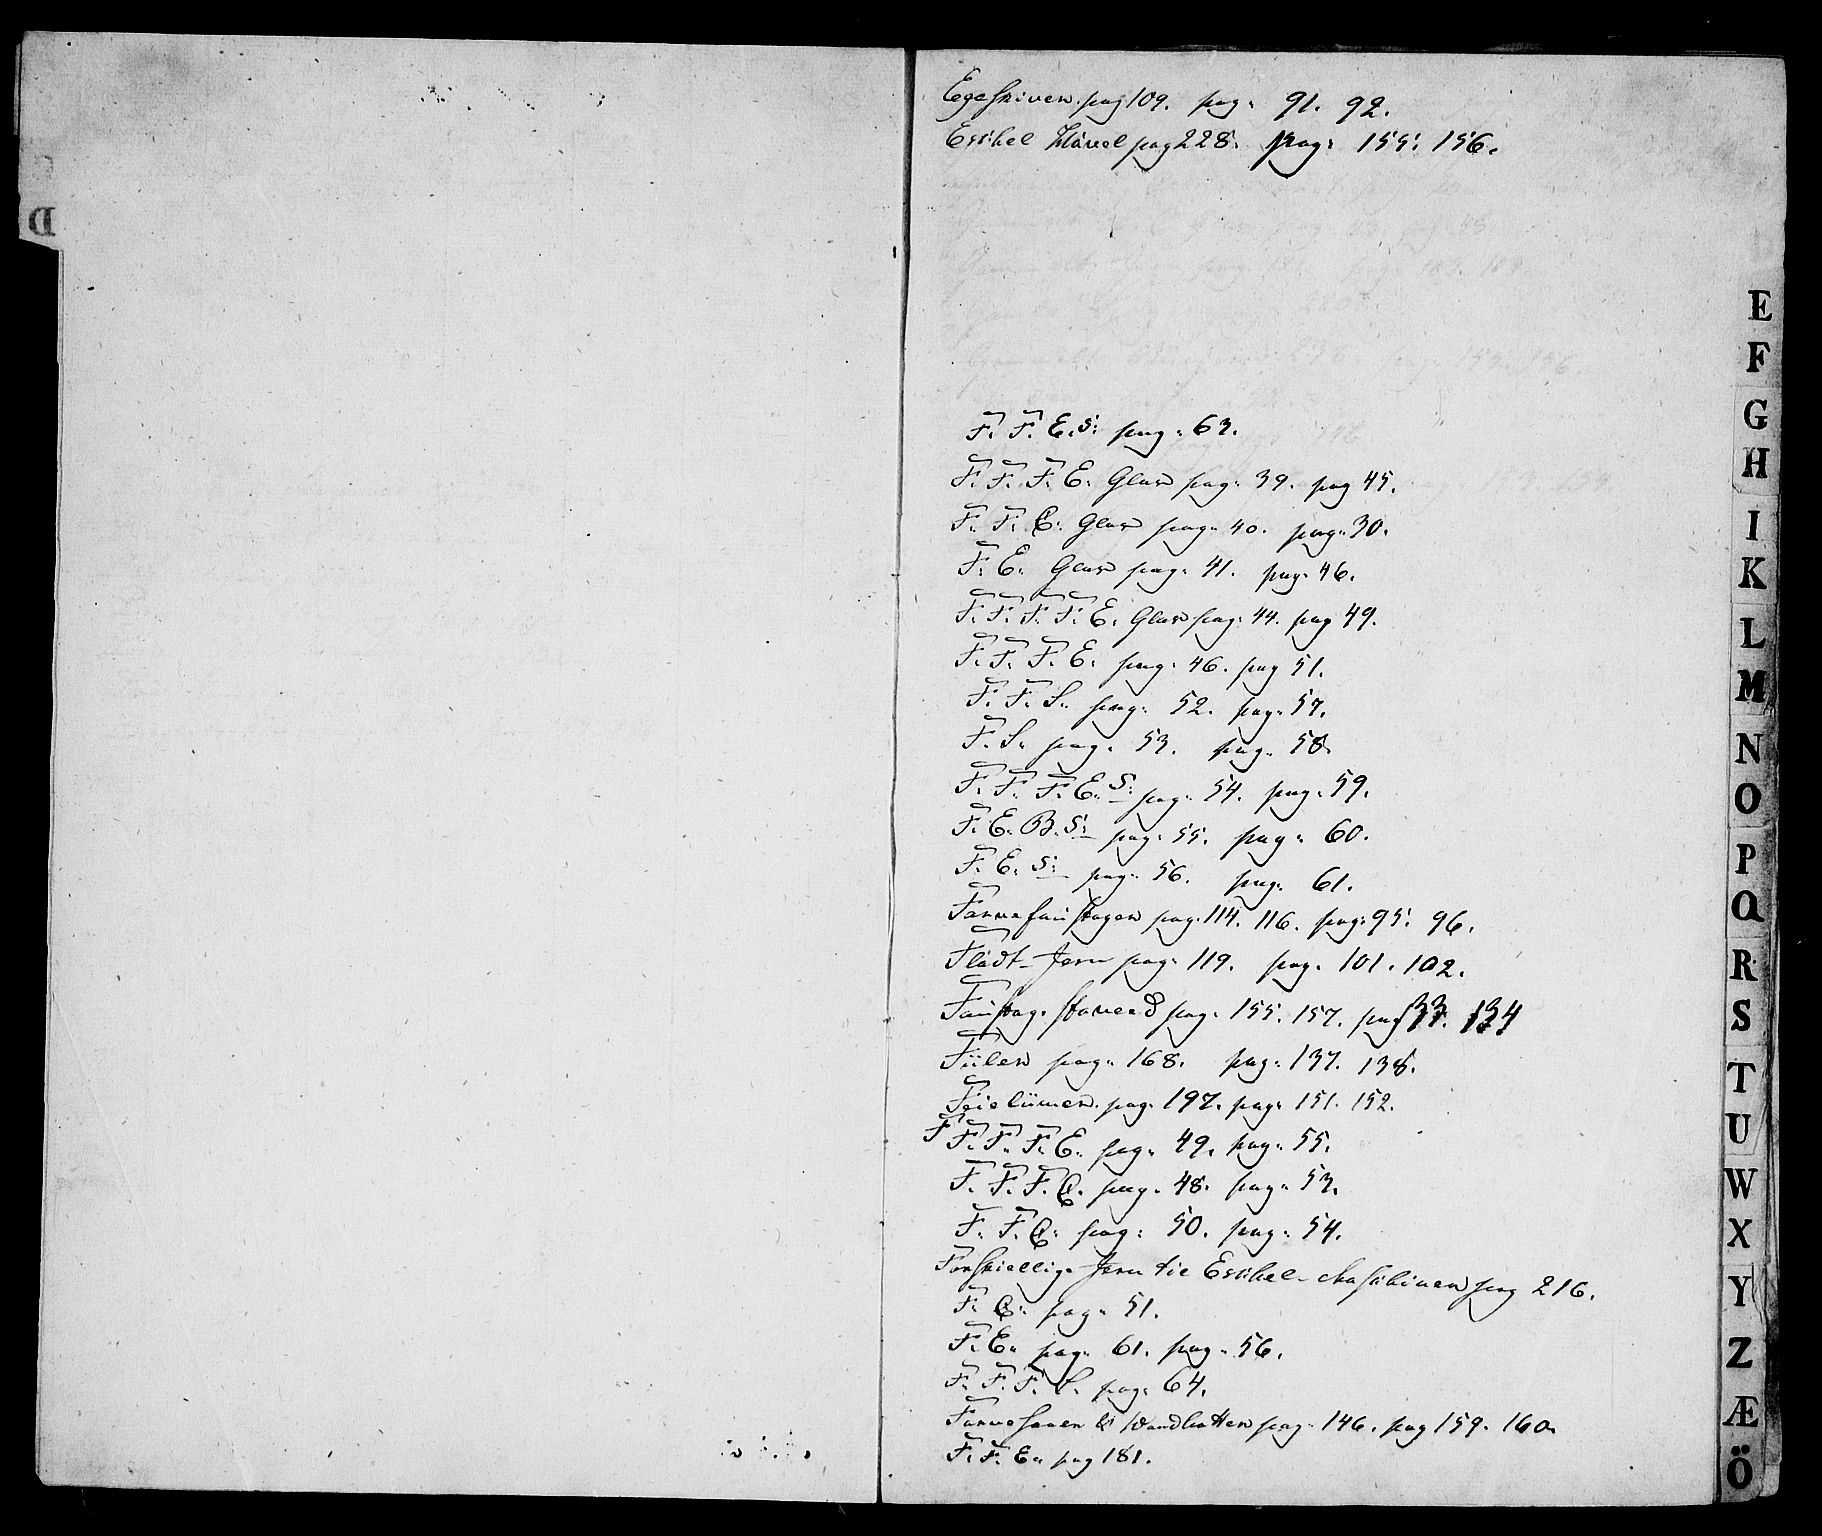 D
Egeskiven pag 109. pag: 91. 92.
Essikel Støvel pag 228. pag: 155. 156.
F. F. E. S: pag: 63.
F. F. F. E. Glas pag: 39. pag 45.
F. F. E. Glas pag: 40. pag: 30.
F. E. Glas pag: 41. pag: 46.
F. F. F. F. E. Glas pag: 44. pag 49.
F. F. F. E. pag: 46. pag 51.
F. F. S. pag: 52. pag: 57.
F. S. pag: 53. pag: 58.
F. F. F. E. S: pag: 54. pag: 59.
F. E. B. S: pag: 55. pag: 60.
F. E. S: pag: 56. pag: 61.
pag: 114. 116. pag: 95. 96.
Flådt-Jern pag: 119. pag: 101. 102.
Faustag. Staver pag: 155. 157. pag 133. 134
Fiilen pag: 168. pag: 137. 138.
pag: 197. pag: 151. 152.
F F. F. F. E. pag: 49. pag: 55.
F. F. F. E. pag: 48. pag: 53.
F. F. E: pag: 50. pag: 54.
Forskiellig Jern til Essikel- Maskinen pag 216.
F. E: pag: 51.
F. E. pag: 61. pag: 56.
F. F. F. S. pag: 64.
pag: 146. pag 159. 160.
F. F. E. pag 181.
E
F
G
H
I
K
L
M
N
O
P
Q
R
S
T
U
W
X
Y
Z
Æ
Ö